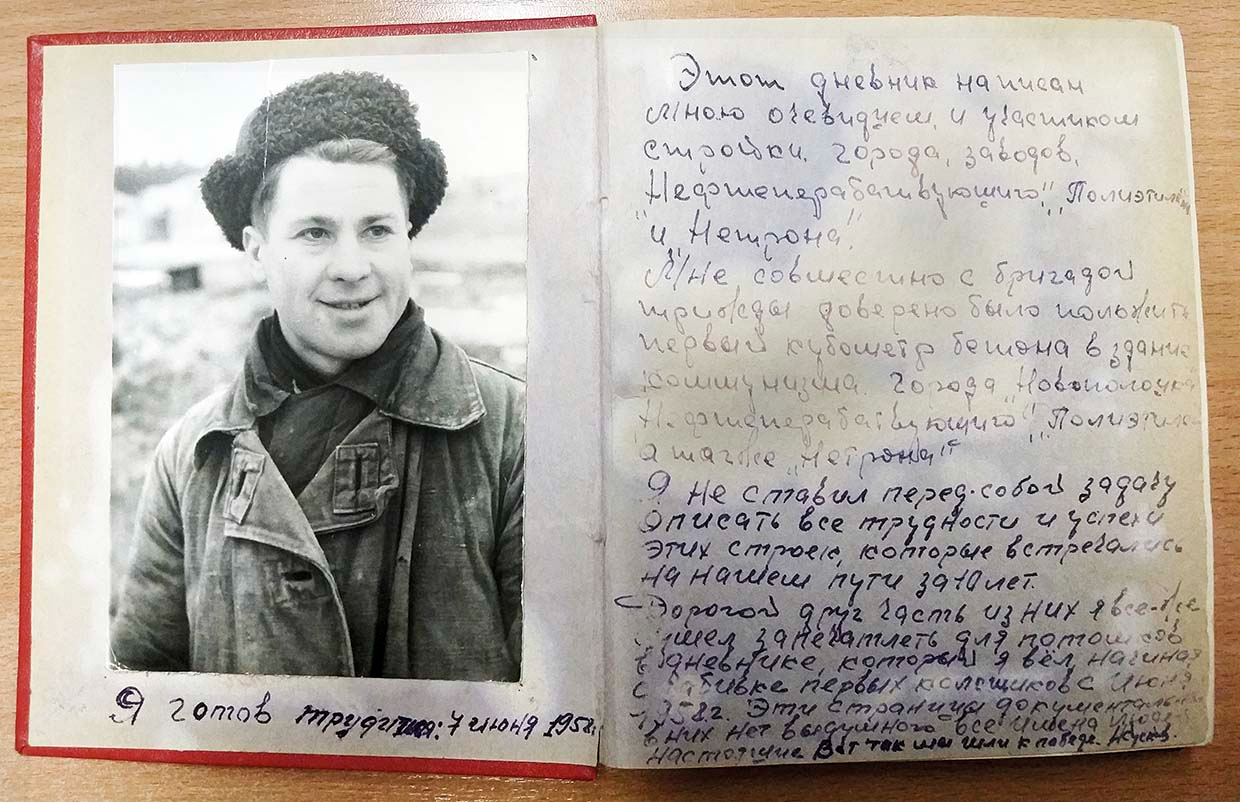 Я готов трудится: 7 июня 1958г.
Этот дневник написан
Мною очевидцем и участиком
стройки города, заводов,
"Нефтеперабатвующиго", "Полиэтилен"
"и "Нетрона".
Мне совместно с бригадой
трижды доверено было положить
первый кубометр бетона в здание
коммунизма города "Новополоцка"
"Нефтеперабатвующиго" "Полиэтилен
а также "Нетрона"
Я не ставил перед собой задачу
описать все трудности и успехи
этих строек, которые встречались
на нашем пути за 10 лет.
Дорогой друг часть из них я все-же
сумел запечатлеть для потомков
в дневнике, который я вёл, начиная
с забивке первых колошиков с Июня
1958г. Эти страницы документаль-
в них нет выдумного все имена людей
настоящие Вот так мы шли к победе.